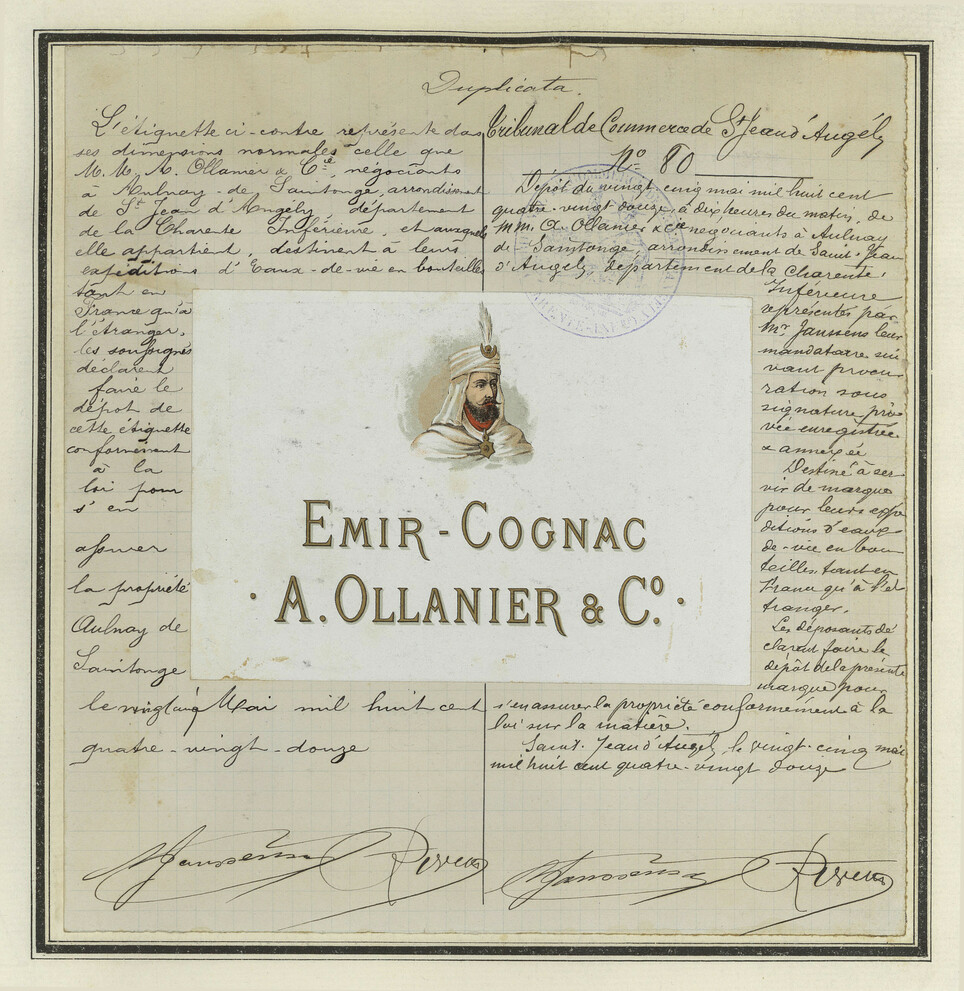 Duplicata.
L'étiquette ci-contre représente dans
ses dimensions normales celle que
M.M. A. Ollanier & Cie, négociants
à Aulnay-de-Saintonge, arrondissement
de St Jean d'Angély, département
de la Charente Inférieure, et auxquels
elle appartient, destinent à leurs
expéditions d'Eaux-de-vie en bouteilles
tant en
France qu'à
l'étranger.
les soussignés
déclarent
faire le
dépôt de
cette étiquette
conformément
à la
loi pour
s'en
assurer
la propriété
Aulnay de
Saintonge
le vingt cinq Mai mil huit cent
quatre-vingt-douze
Janssens
Tribunal de Commerce de St Jean d'Angély
No 80
Dépôt du vingt cinq mai mil huit cent
quatre-vingt douze à dix heures du matin, de
MM. A. Ollanier & Cie négociants à Aulnay
de Saintonge arrondissement de Saint-Jean
d'Angély département de la Charente-
Inférieure
représentés par
Mr Janssens leur
mandataire sui
vant procu
ration sous
signature pri
vée enregistrée
& annexée
Destiné à ser
vir de marque
pour leurs expé
ditions d'eaux
de-vie en bou
teilles tant en
France qu'à l'é
tranger.
Les déposants dé
clarent faire le
dépôt de la présente
marque pour
s'en assurer la propriété conformément à la
loi sur la matière.
Saint-Jean d'Angély, le vingt-cinq mai
mil huit cent quatre-vingt douze
Janssens
EMIR-COGNAC
· A. OLLANIER & CO. ·